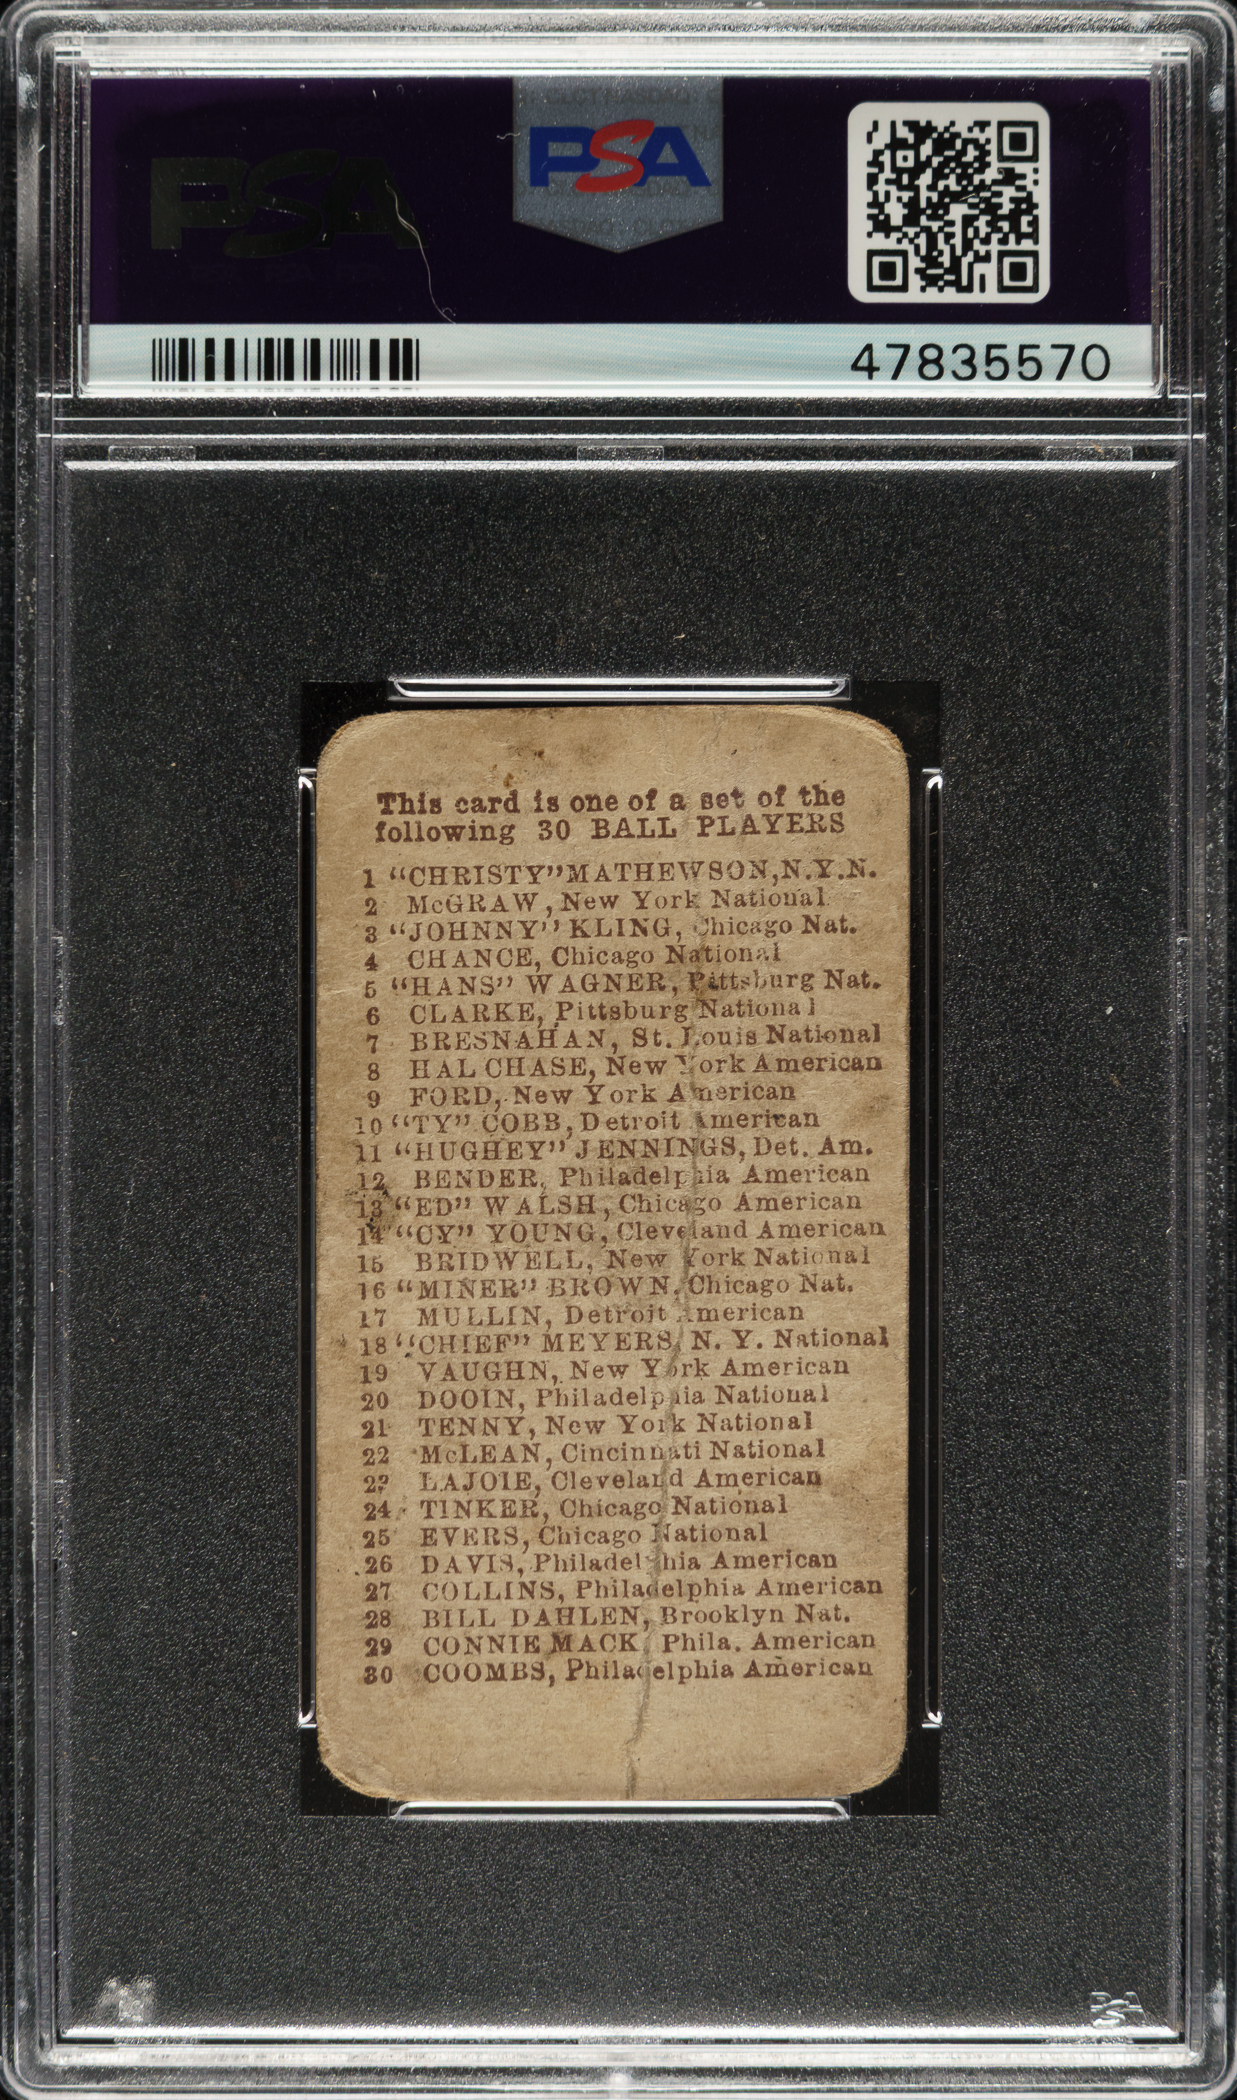 PSA
PSA
47835570
This card is one of a set of the
following 30 BALL PLAYERS
1 "CHRISTY" MATHEWSON, N.Y.N.
2 McGRAW, New York National
3 "JOHNNY" KLING, Chicago Nat.
4 CHANCE, Chicago National
5 "HANS" WAGNER, Pittsburg Nat.
6 CLARKE, Pittsburg National
7 BRESNAHAN, St. Louis National
8 HAL CHASE, New York American
9 FORD, New York American
10 "TY" COBB, Detroit American
11 "HUGHEY" JENNINGS, Det. Am.
12 BENDER, Philadelphia American
13 "ED" WALSH, Chicago American
14 "CY" YOUNG, Cleveland American
15 BRIDWELL, New York National
16 "MINER" BROWN, Chicago Nat.
17 MULLIN, Detroit American
18 "CHIEF" MEYERS, N. Y. National
19 VAUGHN, New York American
20 DOOIN, Philadelphia National
21 TENNY, New York National
22 McLEAN, Cincinnati National
23 LAJOIE, Cleveland American
24 TINKER, Chicago National
25 EVERS, Chicago National
26 DAVIS, Philadelphia American
27 COLLINS, Philadelphia American
28 BILL DAHLEN, Brooklyn Nat.
29 CONNIE MACK, Phila. American
30 COOMBS, Philadelphia American
PSA